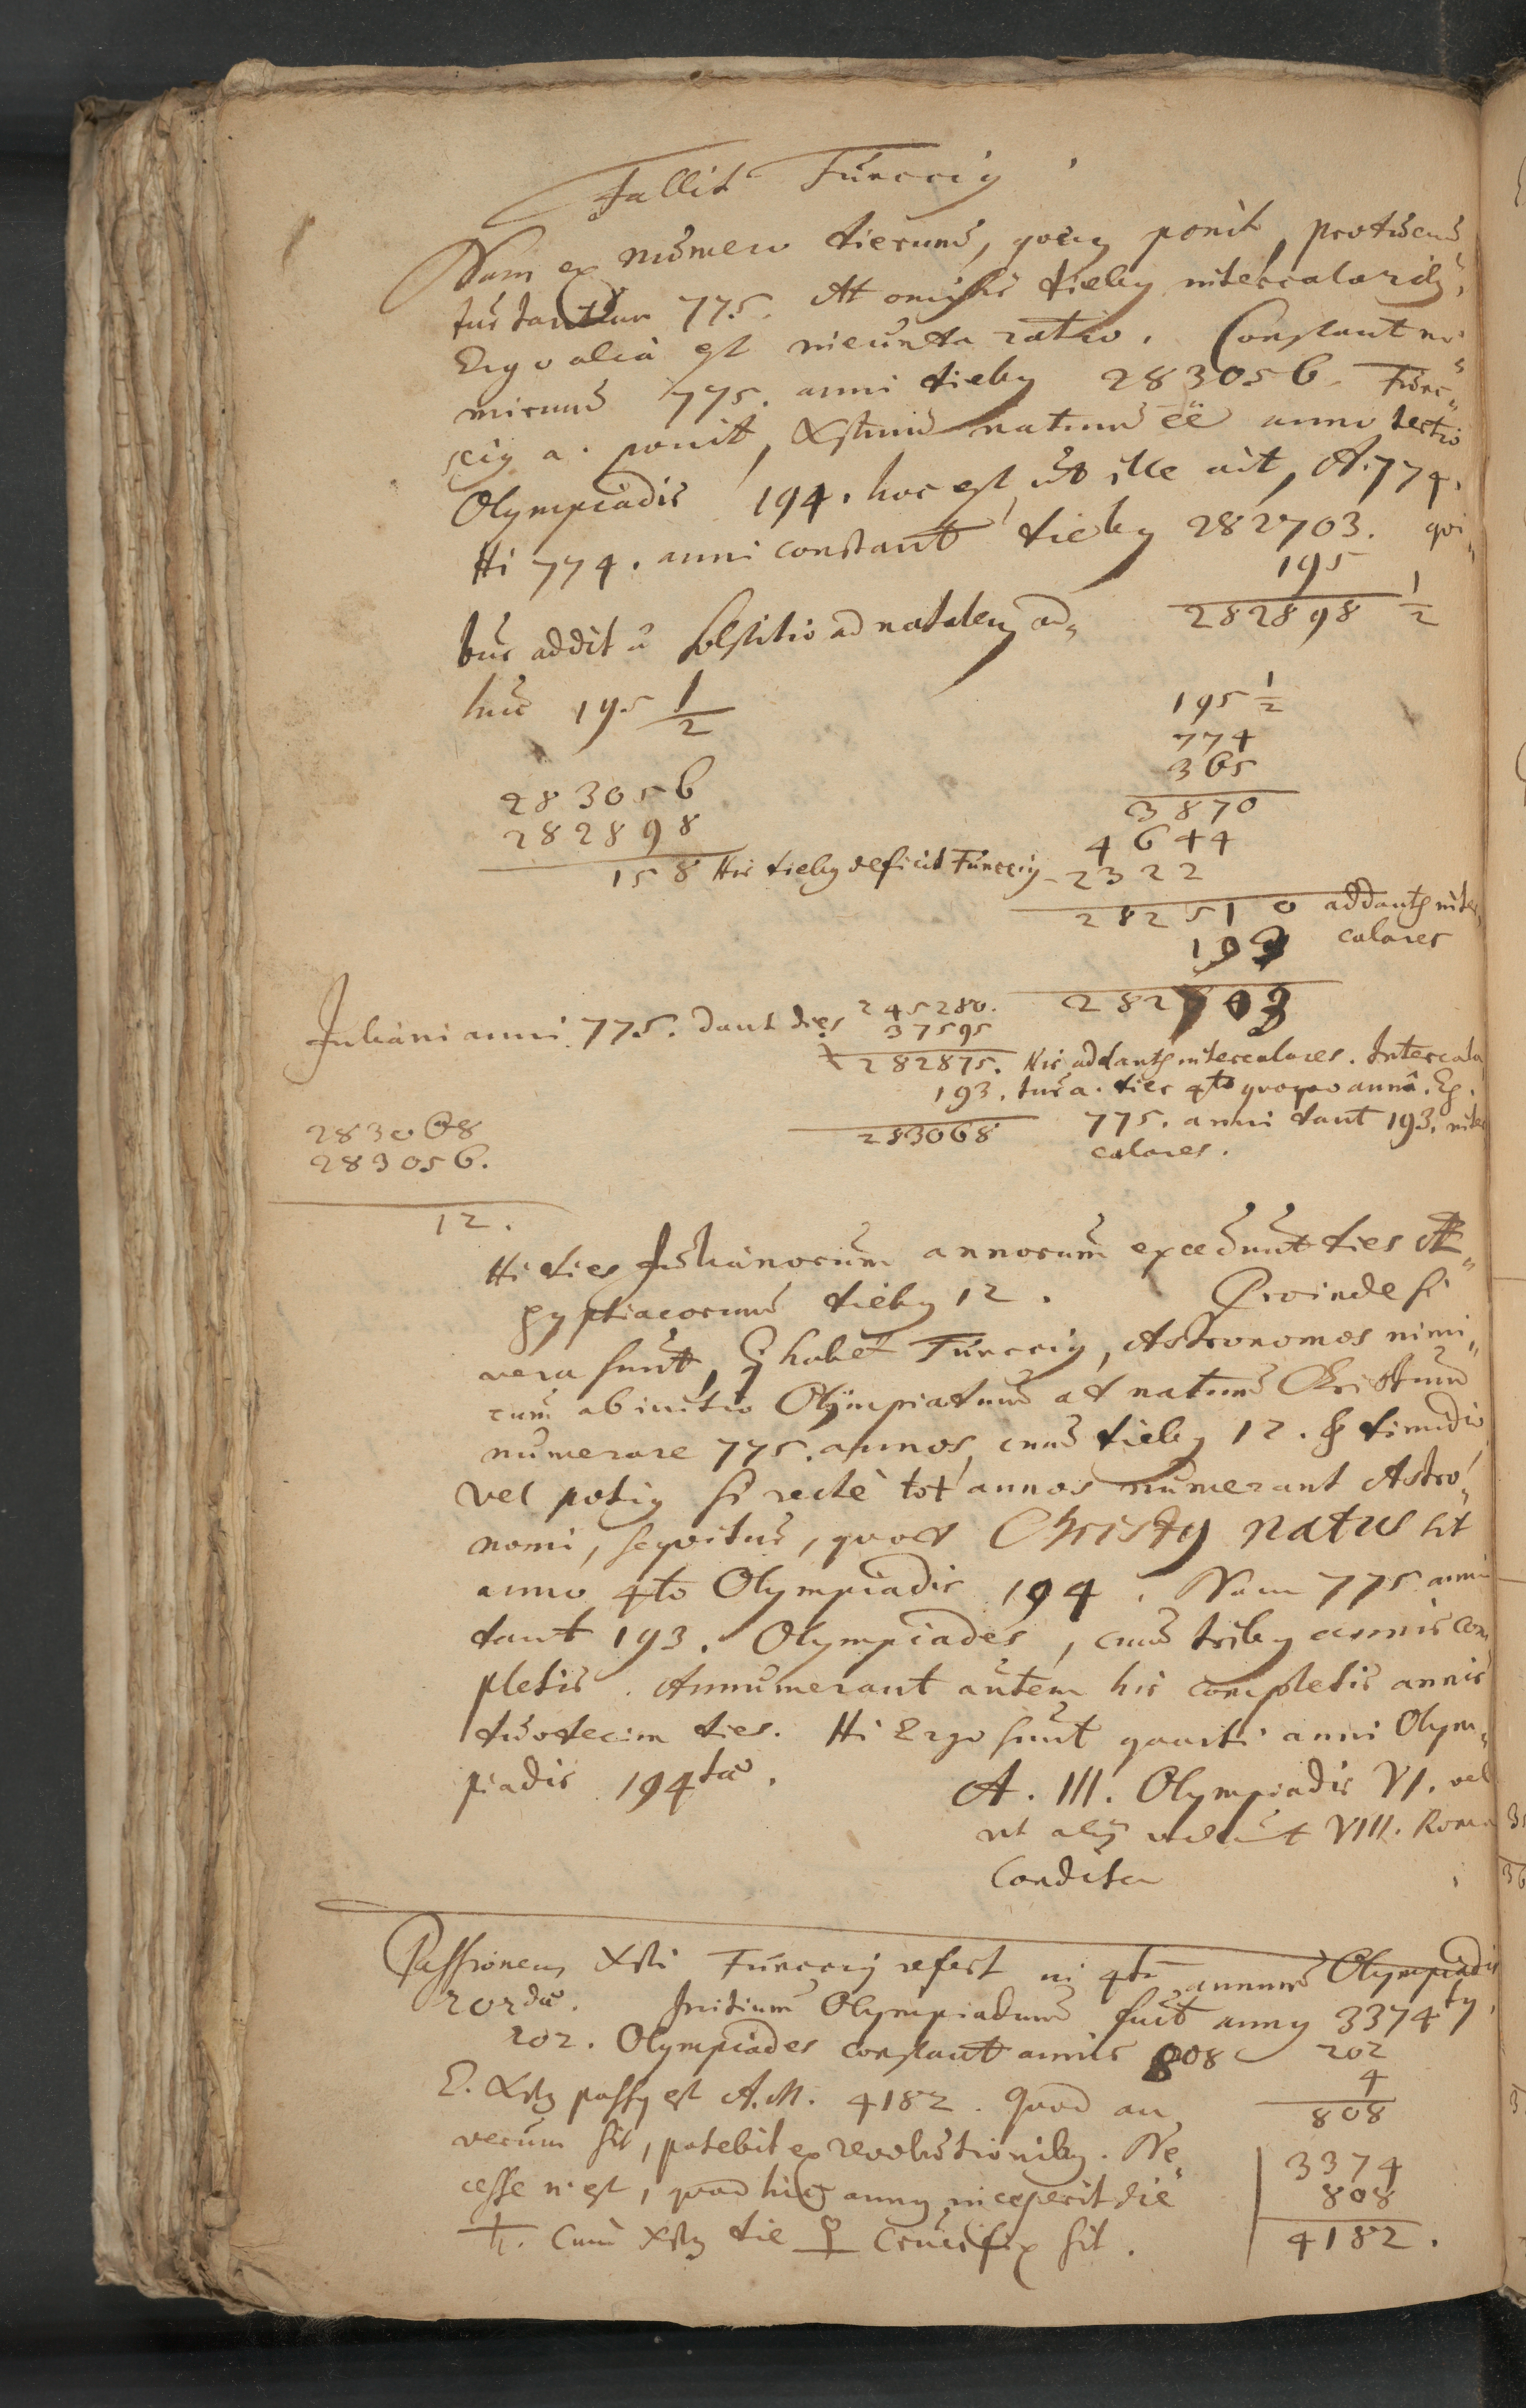 Fallit Funccig
Nam ex numero dierum, quem ponit, producun
tur tantum 775. At omissis dieby intercalariby,
Ergo alia est ineunda ratio. Constant n.
mirum 775. anni dieby 283056. Func-
cig a. ponit, Xstum natum ee anno tertio
Olympiadis 194. hoc est, ut ille ait, A. 774.
Hi 774. anni constant dieby 282703. qui-
195
bus addit a solstitio ad natalem ad- 282898 1/2
huc 195 1/2
195 1/2
774
365
283056
3870
282898
4644
158 His dieby deficit Funccig 2322
282510 addantr inter-
193 calares
282703
Juliani anni 775. dant dies 245280.
37595
282875. His addantr intercalares. Intercala
193. tur a. dies 4to quoque anno. Eg.
283068 775. anni dant 193. inter
calares.
283068
283056.
12.
Hi dies Julianorum annorum excedunt dies Æ-
gyptiacorum dieby 12. Proinde si
vera sunt, q habet Funccig, Astronomos nimi-
rum ab initio Olympiadum ad natum Christum
numerare 775. annos, cum dieby 12. & dimidio
vel potig si recte tot annos numerant Astro-
nomi, sequitur, quod Christg natus sit
anno 4to Olympiadis 194. Nam 775 anni
dant 193. Olympiades, cum triby annis com
pletis. Annumerant autem his completis annis
duodecim dies. Hi Ergo sunt quarti anni Olym-
piadis 194tae.
A. III. Olympiadis VI. vel
ut alij volunt VIII. Roma
Condita
Passionem Xsti Funccig refert in 4tu annum Olympiadis
202dae. Initium Olympiadum fuit anng 3374tg.
202. Olympiades constant annis 808
202
4
808
E. Xstg passg est A. M. 4182. Quod an
verum sit, patebit ex revolutioniby. Ne
cesse n. est, quod hic anng inceperit die
♄. Cum Xstg die ♀ Crucifix sit.
3374
808
4182.